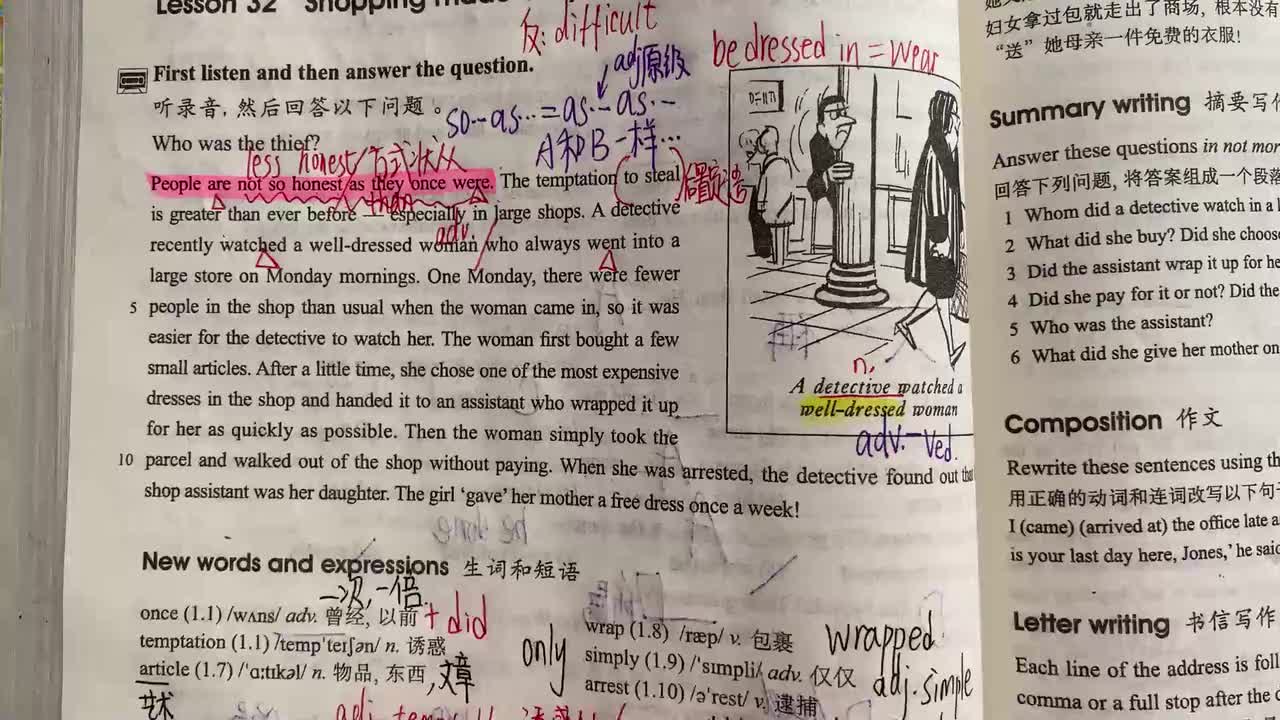 Lesson 32 Shopping made
反: difficult
be dressed in = wear
First listen and then answer the question.
听录音,然后回答以下问题。
adj原级
so…as…=as…as…
A和B一样…
Who was the thief?
less honest/方式状从
People are not so honest as they once were. The temptation to steal
后置定语
than
is greater than ever before — especially in large shops. A detective
adv.
recently watched a well-dressed woman who always went into a
large store on Monday mornings. One Monday, there were fewer
5 people in the shop than usual when the woman came in, so it was
easier for the detective to watch her. The woman first bought a few
small articles. After a little time, she chose one of the most expensive
dresses in the shop and handed it to an assistant who wrapped it up
for her as quickly as possible. Then the woman simply took the
10 parcel and walked out of the shop without paying. When she was arrested, the detective found out that
shop assistant was her daughter. The girl ‘gave’ her mother a free dress once a week!
n.
A detective watched a
well-dressed woman
adv.-ved.
New words and expressions 生词和短语
一次,一倍
once (1.1) /wʌns/ adv. 曾经,以前 + did
temptation (1.1) /temp'teɪʃən/ n. 诱惑
article (1.7) /'ɑ:tɪkəl/ n. 物品,东西,文章
only
wrap (1.8) /ræp/ v. 包裹 wrapped
simply (1.9) /'sɪmpli/ adv. 仅仅 adj. simple
arrest (1.10) /ə'rest/ v. 逮捕
妇女拿过包就走出了商场,根本没有
“送”她母亲一件免费的衣服!
Summary writing 摘要写作
Answer these questions in not mor
回答下列问题,将答案组成一个段落
1 Whom did a detective watch in a l
2 What did she buy? Did she choos
3 Did the assistant wrap it up for he
4 Did she pay for it or not? Did the
5 Who was the assistant?
6 What did she give her mother on
Composition 作文
Rewrite these sentences using th
用正确的动词和连词改写以下句子
I (came) (arrived at) the office late a
is your last day here, Jones,’ he said
Letter writing 书信写作
Each line of the address is foll
comma or a full stop after the